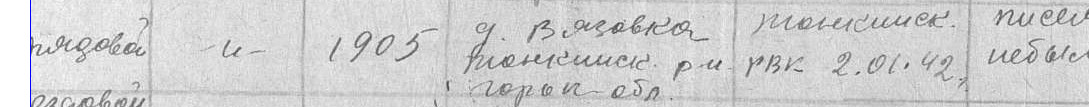 рядовой -"- 1905 д. Вязовка Тонкинск. писем
Тонкинск. р-н. РВК 2.01.42, небыло
Горьк-обл.
рядовой